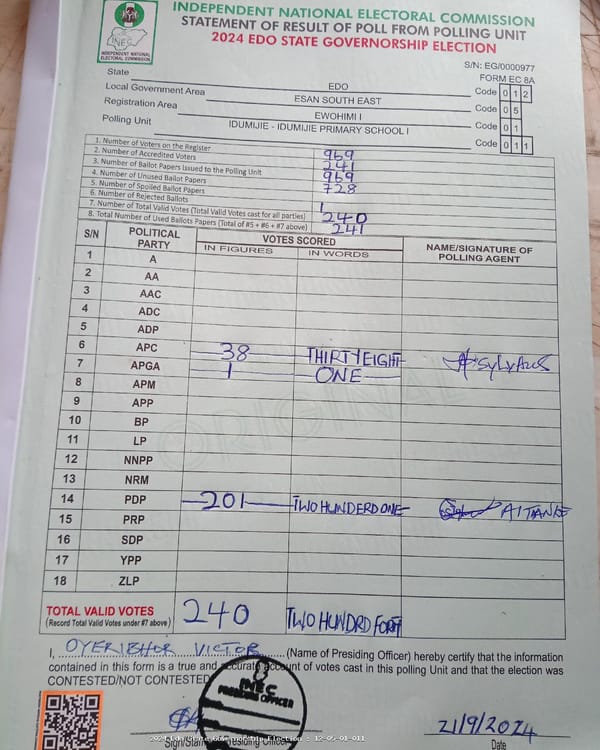 INDEPENDENT NATIONAL ELECTORAL COMMISSION
STATEMENT OF RESULT OF POLL FROM POLLING UNIT
2024 EDO STATE GOVERNORSHIP ELECTION
INEC
INDEPENDENT NATIONAL
ELECTORAL COMMISSION
S/N: EG/0000977
FORM EC 8A
State EDO Code 0 1 2
Local Government Area ESAN SOUTH EAST Code 0 5
Registration Area EWOHIMI I Code 0 1
Polling Unit IDUMIJIE - IDUMIJIE PRIMARY SCHOOL I Code 0 1 1
1. Number of Voters on the Register 969
2. Number of Accredited Voters 241
3. Number of Ballot Papers Issued to the Polling Unit 969
4. Number of Unused Ballot Papers 728
5. Number of Spoiled Ballot Papers
6. Number of Rejected Ballots 1
7. Number of Total Valid Votes (Total Valid Votes cast for all parties) 240
8. Total Number of Used Ballots Papers (Total of #5 + #6 + #7 above) 241
S/N POLITICAL PARTY VOTES SCORED NAME/SIGNATURE OF POLLING AGENT
IN FIGURES IN WORDS
1 A
2 AA
3 AAC
4 ADC
5 ADP
6 APC 38 THIRTYEIGHT
7 APGA 1 ONE
8 APM
9 APP
10 BP
11 LP
12 NNPP
13 NRM
14 PDP 201 TWO HUNDERD ONE
15 PRP
16 SDP
17 YPP
18 ZLP
ORIGINAL
TOTAL VALID VOTES 240 TWO HUNDRD FORT
(Record Total Valid Votes under #7 above)
I, OYERIBHOR VICTOR (Name of Presiding Officer) hereby certify that the information
contained in this form is a true and accurate account of votes cast in this polling Unit and that the election was
CONTESTED/NOT CONTESTED
INEC
PRESIDING OFFICER
21/9/2024
Date